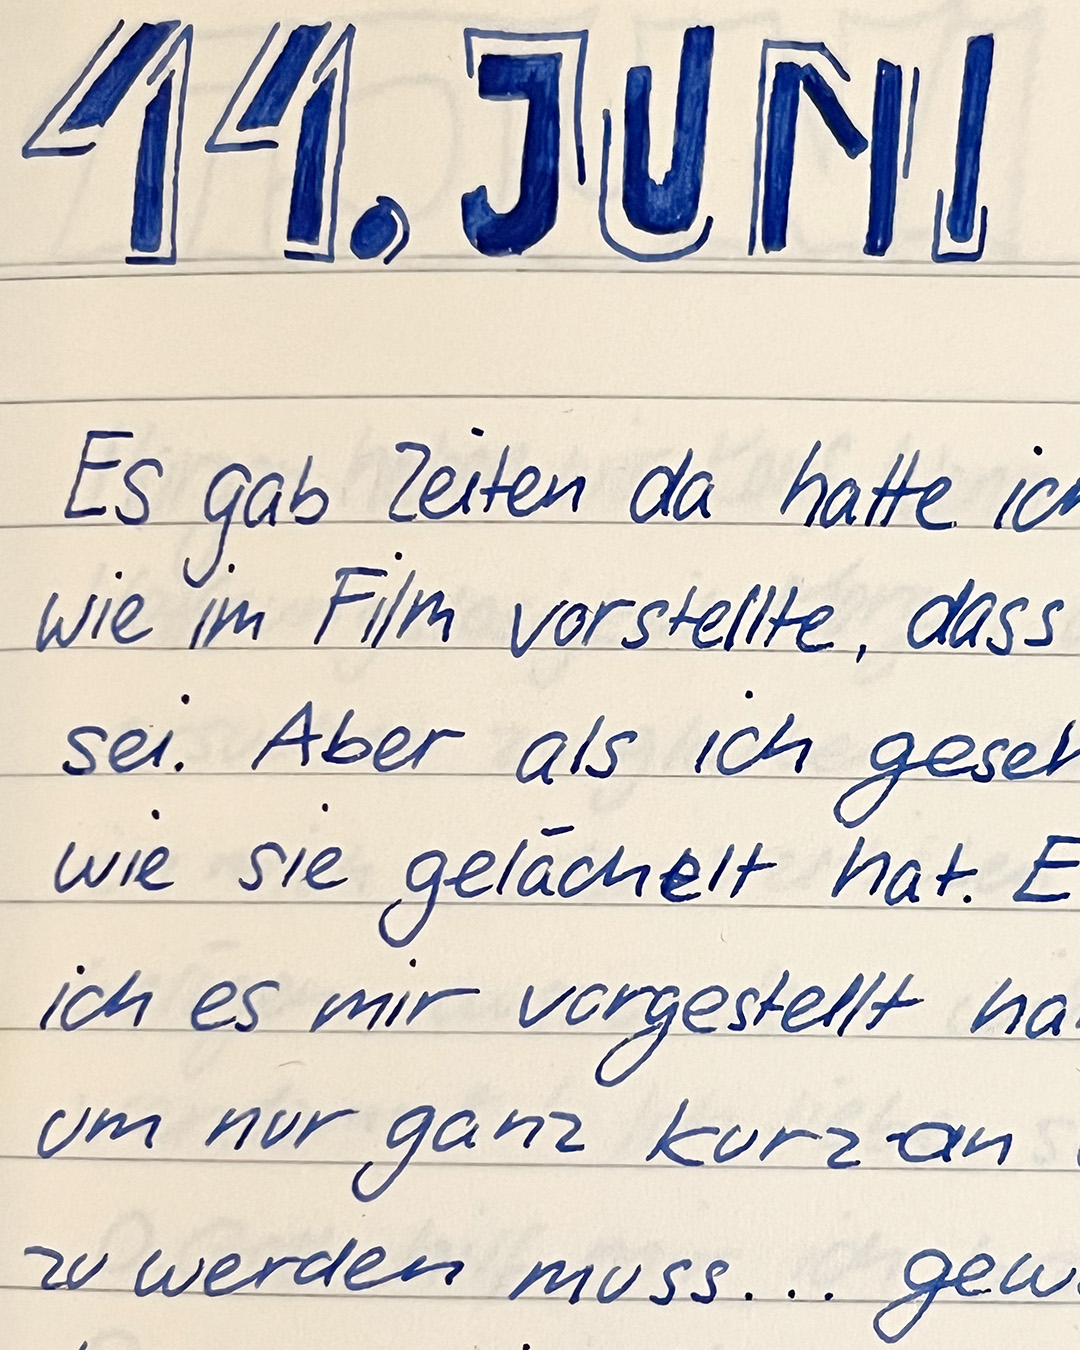 11. JUNI
Es gab Zeiten da hatte ich
wie im Film vorstellte, dass
sei. Aber als ich geseh
wie sie gelächelt hat. E
ich es mir vorgestellt ha
um nur ganz kurz an
zu werden muss... gew